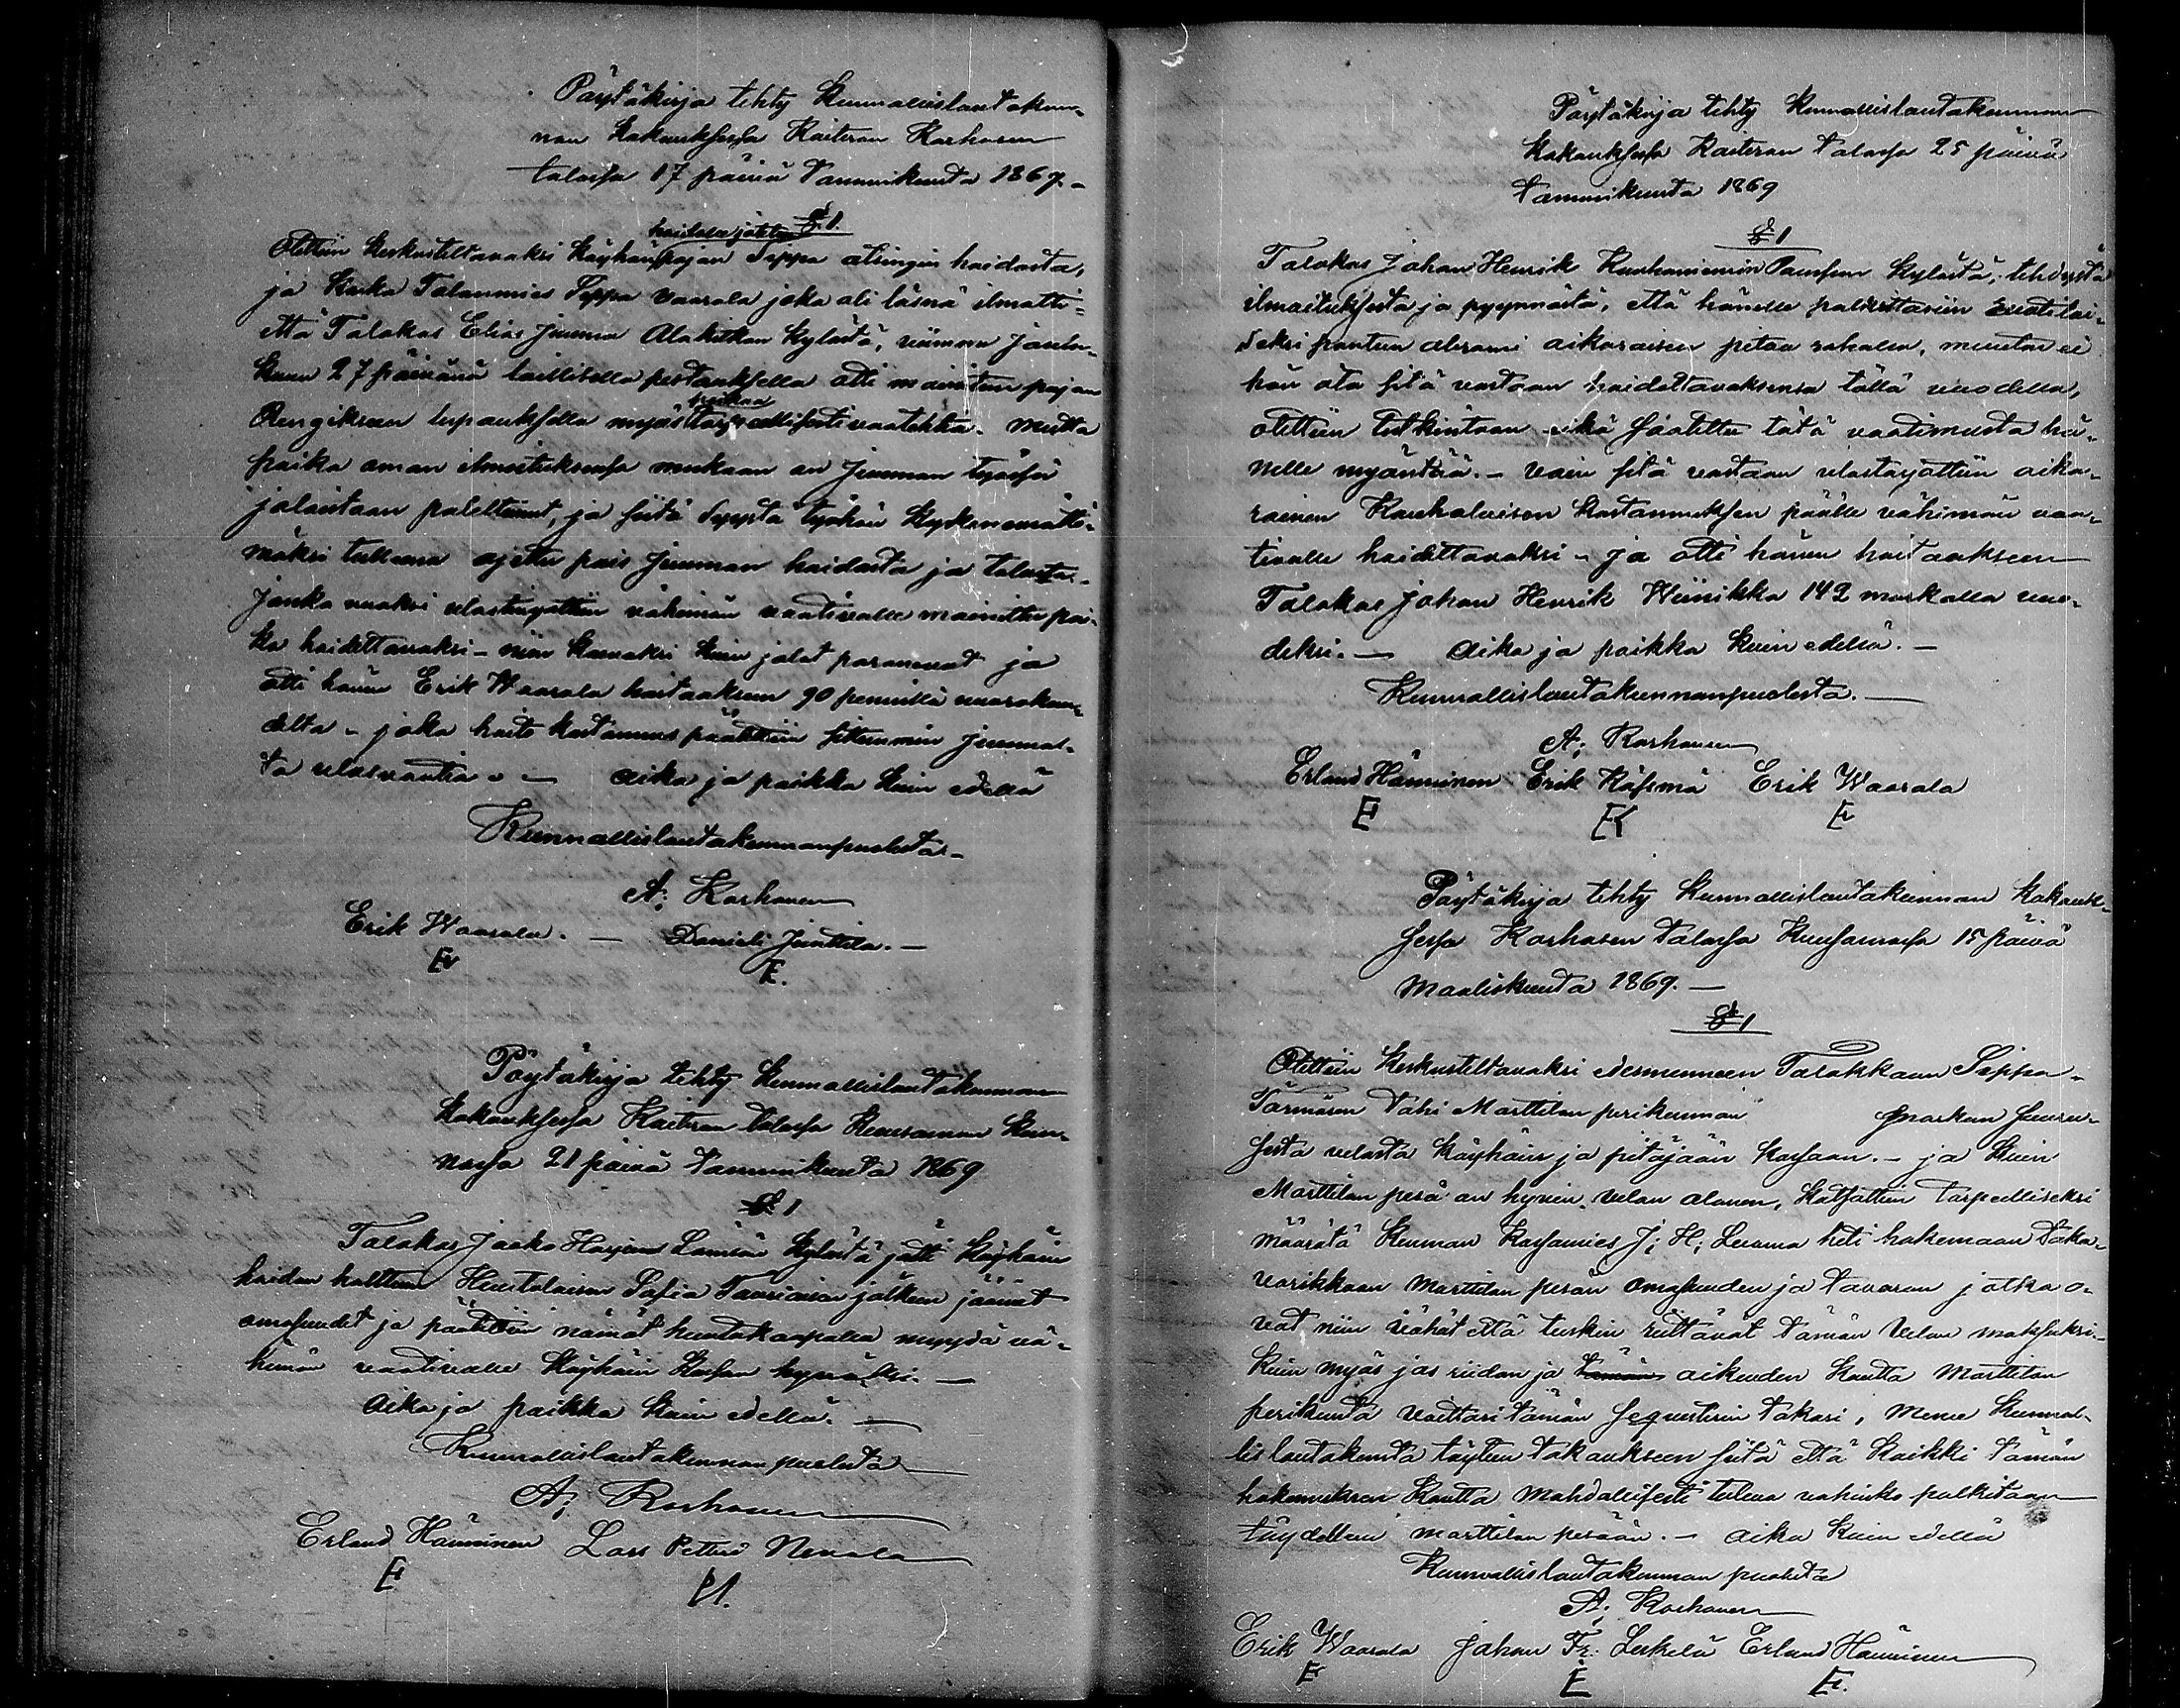 Pöytäkirja tehty Kunnallislautakun-
nan Kokouksessa Raiteran Korhosen
talossa 17 päivä Tammikuuta 1869.-
§ 1.
hoidolle jätetyn
Otettiin Keskusteltavaksi Köyhän pojan Seppä hoidosta,
ja Koska Talonmies Seppä Vaarala joka oli läsnä ilmotti-
että Talokas Elias Juuma Alakitkan Kylästä, viimein Joulu-
Kuun 27 päivänä laillisella pestauksella otti mainitun pojan
poikaa
Rengikseen lupauksella myös tarpeellisesti vaatehtia. Mutta
poika oman ilmoituksensa mukaan on Juuman työssä
jalointaan paleltunut, ja siitä syystä työhön Kykenemättö-
mäksi tulleena ajettu pois Juuman hoidosta ja talosta.-
Jonka vuoksi ulostarjottiin vähimän vaativalle mainittu poi-
ka hoidettavaksi - niin Kauvaksi Kuin jalat paranevat ja
otti hänen Erik Waarala hoitaaksensa 90 pennillä vuorokau-
delta - joka hoito Kostannus päätettiin sittemmin Juumal-
ta ulosvaatia. - Aika ja paikka Kuin edellä
Kunnallislautakunnanpuolesta.-
A; Korhonen
Erik Waarala. - Danieli Jänttilä. -
Pöytäkirja tehty Kunnallislautakunnan
Kokouksessa Raiteran talossa Kuusamon Kun-
nassa 21 päivä Tammikuuta 1869
§ 1
Talokas Jaako Harju Lämsän Kylästä jätti Köyhäin
hoidon haltuun Huutolaisen Sofia Tauriaisen jälkeen jäänet
omaisuudet ja päätettiin nämät huutokaupalla myydä vä-
himän vaativalle Köyhäin Kassan hyväksi. -
Aika ja paikka Kuin edellä. -
Kunnallislautakunnan puolesta -
A; Korhonen
Erland Hänninen Lars Petter Nevala
Pöytäkirja tehty Kunnallislautakunnan
Kokouksessa Raiteran Talossa 25 päivä
Tammikuuta 1869
§ 1
Talokas Johan Henrik Kuuhaniemin Poussun Kylästä, tehdystä
ilmoituksesta ja pyynnöstä, että hänelle palkittasiin huutolai-
seksi pantun aikaraisen pitoa rahalla, muuten ei
hän ota sitä vastaan hoidettavaksensa tällä vuodella,
otettiin Tutkintoon eikä saatettu tätä vaatimusta hä-
nelle myöntää. - Vain sitä vastaan ulostarjottiin aika-
raisen Kostannuksen päälle vähimän vaa-
tivalle hoidettavaksi - ja otti hänen hoitaakseen
Talokas Johan Henrik Wiinikka 142 markalla vuo-
deksi. - Aika ja paikka Kuin edellä. -
Kunnallislautakunnanpuolesta. -
A; Korhonen
Erland Hänninen Erik Käsmä Erik Waarala
Pöytäkirja tehty Kunnallislautakunnan Kokouk-
sessa Korhosen Talossa Kuusamossa 15 päivä
Maaliskuuta 1869. -
§ 1
Otettiin Keskusteltavaksi edesmenneen Talokkaan Sippo-
Törmäsen Tahi Marttilan perikunnan markan suuru-
sesta velasta Köyhäin ja pitäjään Kassaan. - ja Kuin
Marttilan perä on hyvin velan alainen, Katsattiin tarpeelliseksi
määrätä Kunnan Kassamies J; H; Leuama heti hakemaan Taka-
varikkoon Marttilan perän omasuuden ja tavaran jotka o-
vat niin vähät että tuskin riittävät tämän Velan maksuksi-
Kuin myös jos riidan ja aikeuden Kautta Marttilan
perikunta voittasi tämän Sequesterin takasi, Menee Kunnal-
lislautakunta täyteen takaukseen siitä että Kaikki tämän
hakemuksen Kautta mahdollisesti tuleva vahinko palkitaan
täydelleen Marttilan perään. - Aika Kuin edellä
Kunnallislautakunnan puolesta
A; Korhonen
Erik Waarala Johan Fr: Leskelä Erland Hänninen